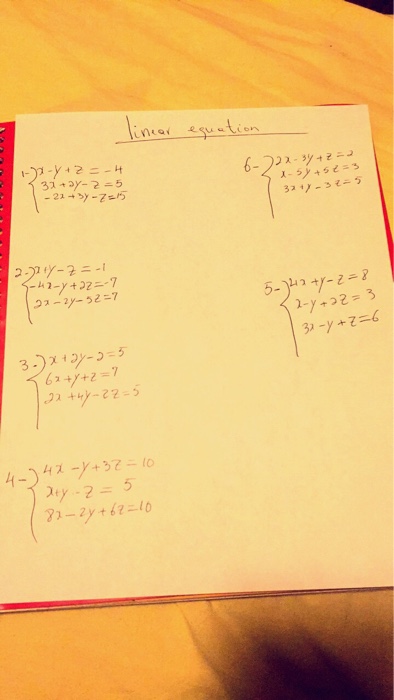 linear equation
1-) x-y+z=-4
3x+2y-z=5
-2x+3y-z=15
2-) x+y-z=-1
-4x-y+2z=-7
2x-2y-5z=7
3-) x+2y-z=5
6x+y+z=7
2x+4y-2z=5
4-) 4x-y+3z=10
x+y-z=5
8x-2y+6z=10
6-) 2x-3y+z=2
x-5y+5z=3
3x+y-3z=5
5-) 4x+y-z=8
x-y+2z=3
3x-y+z=6